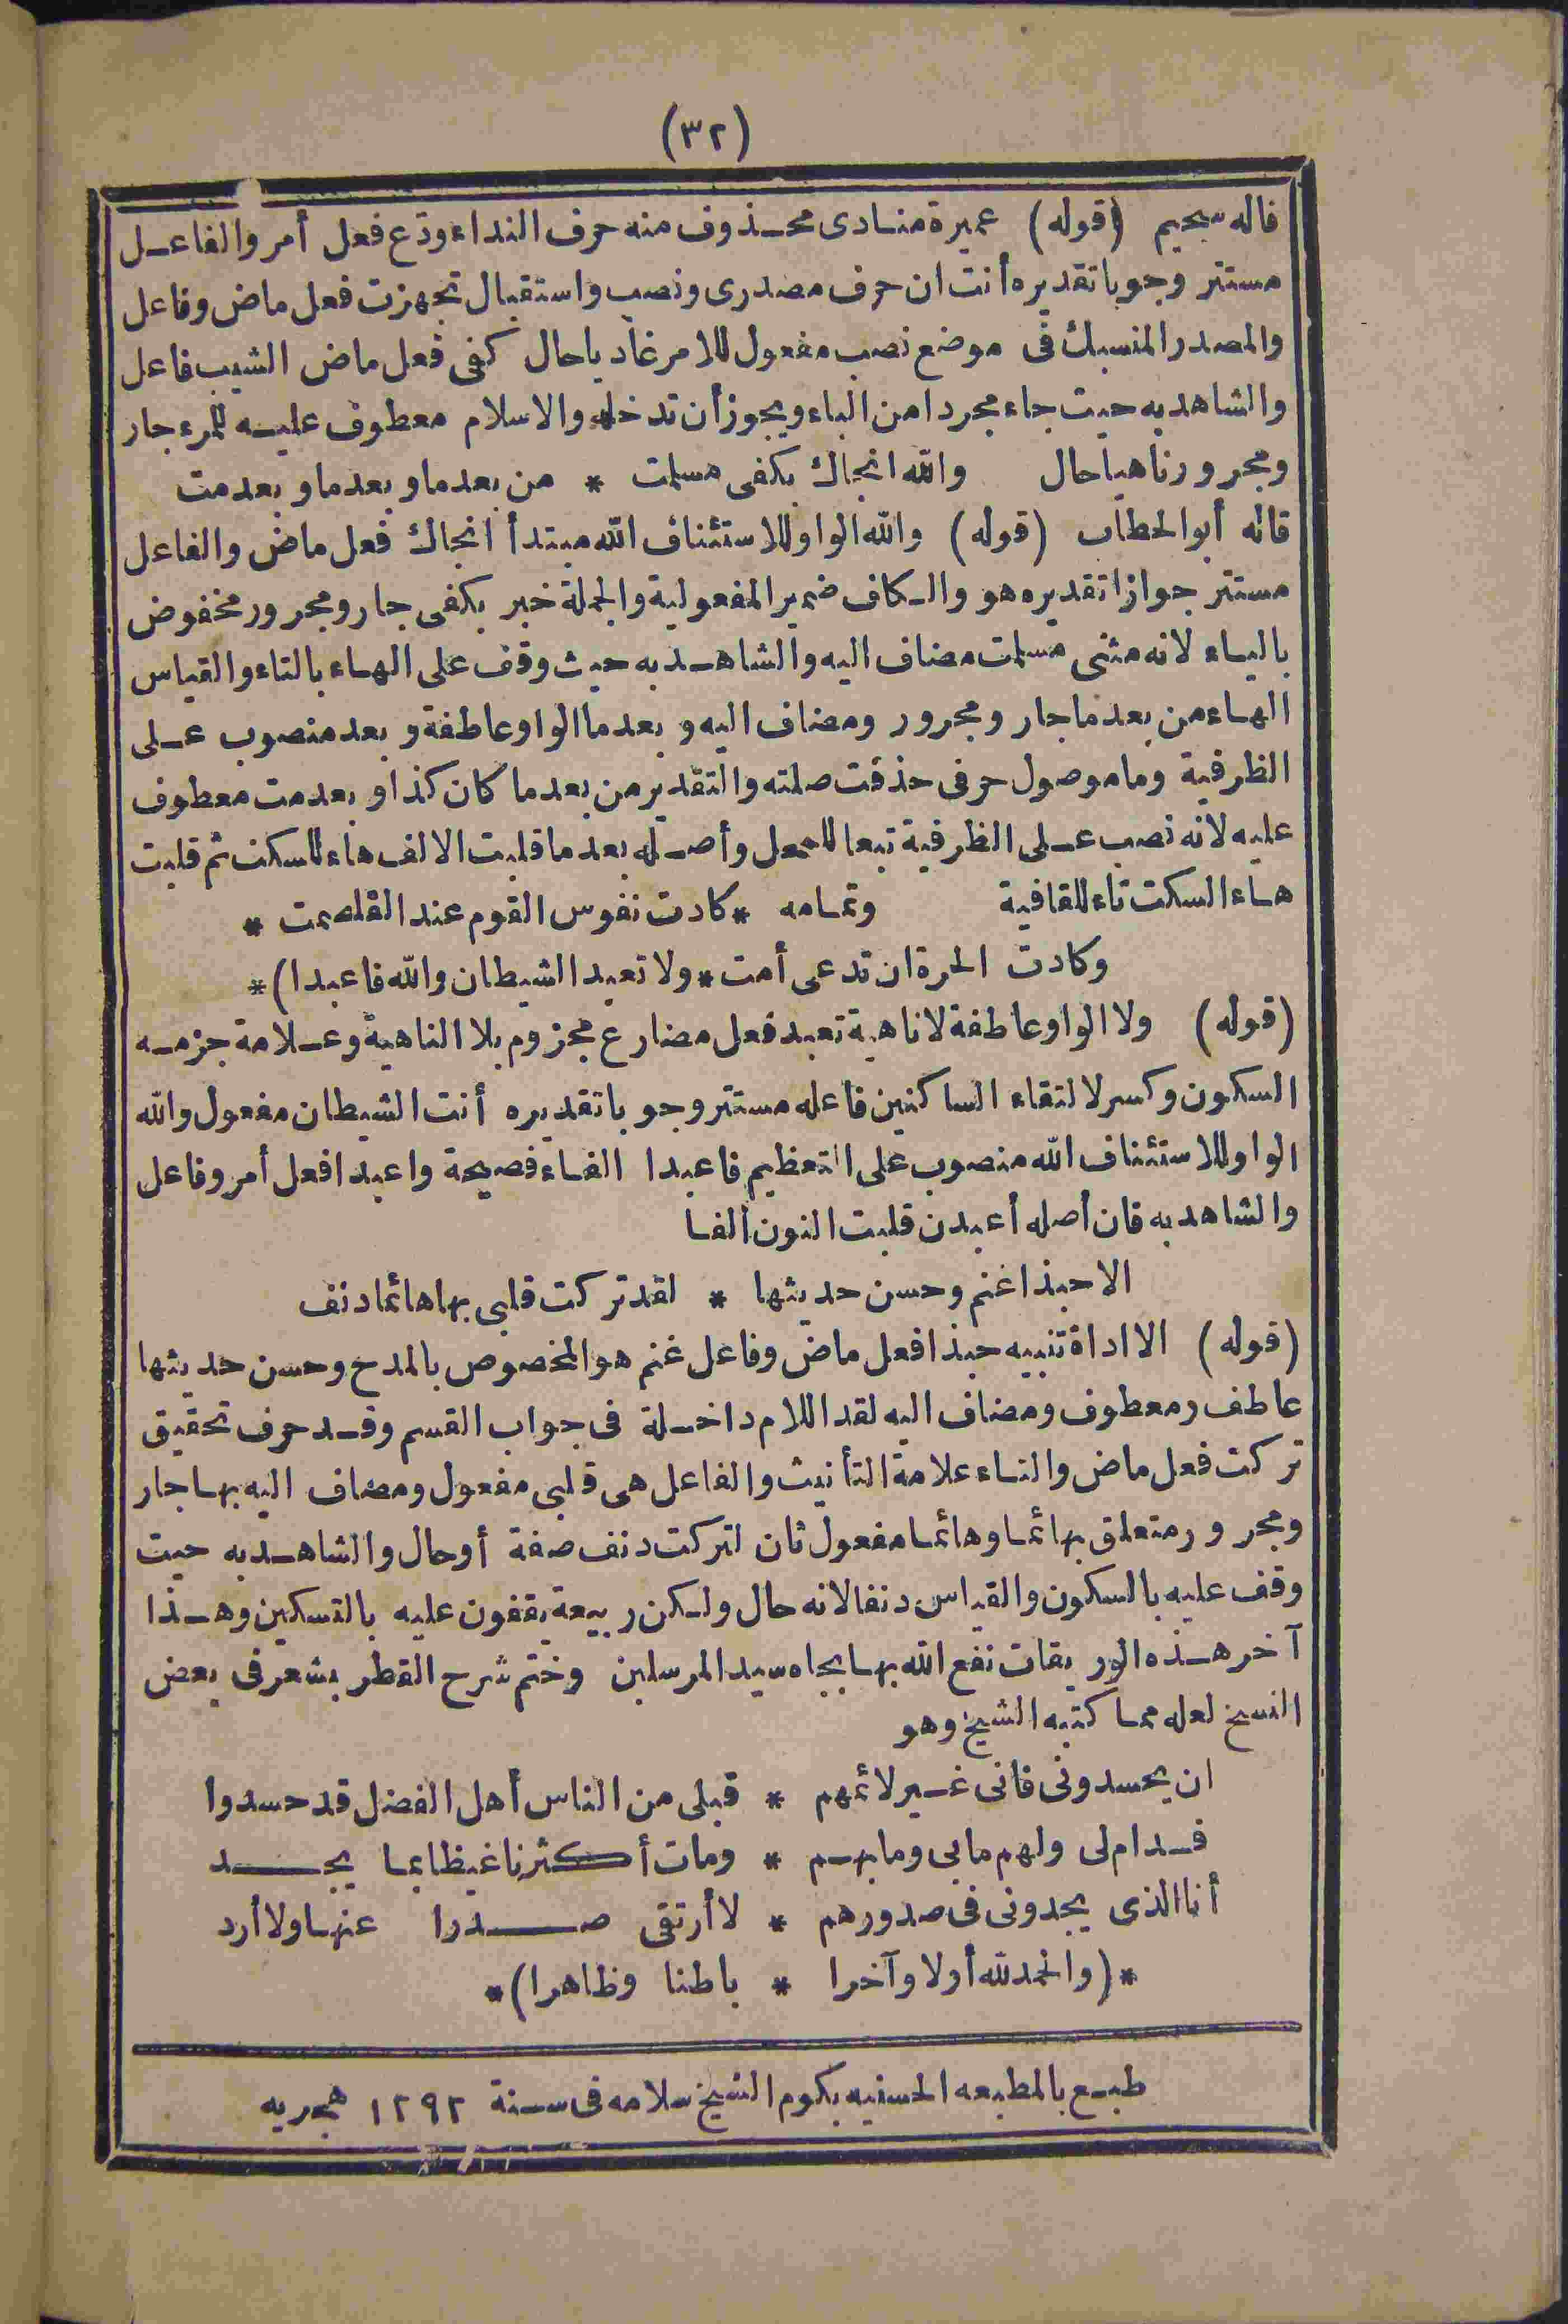 (٣٢)
قاله سحيم (قوله) عميرة منادى محذوف منه حرف النداء ودع فعل أمر والفاعل
مستتر وجوبا تقديره أنت ان حرف مصدرى ونصب واستقبال تجهزت فعل ماض وفاعل
والمصدر المنسبك فى موضع نصب مفعول للامر غاديا حال كفى فعل ماض الشيب فاعل
والشاهد به حيت جاء مجردا من الباء ويجوز أن تدخله والاسلام معطوف عليه للمرء جار
ومجرور ناهيا حال والله انجاك بكفى مسلمت * من بعدما وبعدما وبعدمت
قاله أبو الخطاب (قوله) والله الواو للاستئناف الله مبتدأ انجاك فعل ماض والفاعل
مستتر جوازا تقديره هو والكاف ضمير المفعولية والجملة خبر بكفى جار ومجرور مخفوض
بالياء لانه مثنى مسلمت مضاف اليه والشاهد به حيث وقف على الهاء بالتاء والقياس
الهاء من بعدما جار ومجرور ومضاف اليه وبعدما الواو عاطفة وبعد منصوب على
الظرفية وما موصول حرفى حذفت صلته والتقدير من بعدما كان كذا وبعدمت معطوف
عليه لانه نصب على الظرفية تبعا للمحل وأصله بعدما قلبت الالف هاء للسكت ثم قلبت
هاء السكت تاء للقافية وتمامه * كادت نفوس القوم عند الغلصمت *
وكادت الحرة ان تدعى أمت * ولا تعبد الشيطان والله فاعبدا) *
(قوله) ولا الواو عاطفة لا ناهية تعبد فعل مضارع مجزوم بلا الناهية وعلامة جزمه
السكون وكسر لالتقاء الساكنين فاعله مستتر وجوبا تقديره أنت الشيطان مفعول والله
الواو للاستئناف الله منصوب على التعظيم فاعبدا الفاء فصيحة واعبدا فعل أمر وفاعل
والشاهد به فان أصله أعبدن قلبت النون الفا
الا حبذا غنم وحسن حديثها * لقد تركت قلبى بها هائما دنف
(قوله) الا اداة تنبيه حبذا فعل ماض وفاعل غنم هو المخصوص بالمدح وحسن حديثها
عاطف ومعطوف ومضاف اليه لقد اللام داخلة فى جواب القسم وقد حرف تحقيق
تركت فعل ماض والتاء علامة التأنيث والفاعل هى قلبى مفعول ومضاف اليه بها جار
ومجرور متعلق بهائما وهائما مفعول ثان لتركت دنف صفة أو حال والشاهد به حيت
وقف عليه بالسكون والقياس دنفا لانه حال ولكن ربيعة يقفون عليه بالتسكين وهذا
آخر هذه الوريقات نفع الله بها بجاه سيد المرسلين وختم شرح القطر بشعر فى بعض
النسخ لعله مما كتبه الشيخ وهو
ان يحسدونى فانى غير لائمهم * قبلى من الناس أهل الفضل قد حسدوا
فدام لى ولهم مابى ومابهم * ومات أكثرنا غيظا بما يجد
أنا الذى يجدونى فى صدورهم * لا أرتقى صدرا عنها ولا أرد
* (والحمد لله أولا وآخرا * باطنا وظاهرا) *
طبع بالمطبعه الحسنيه بكوم الشيخ سلامه فى سنة ١٢٩٢ هجريه